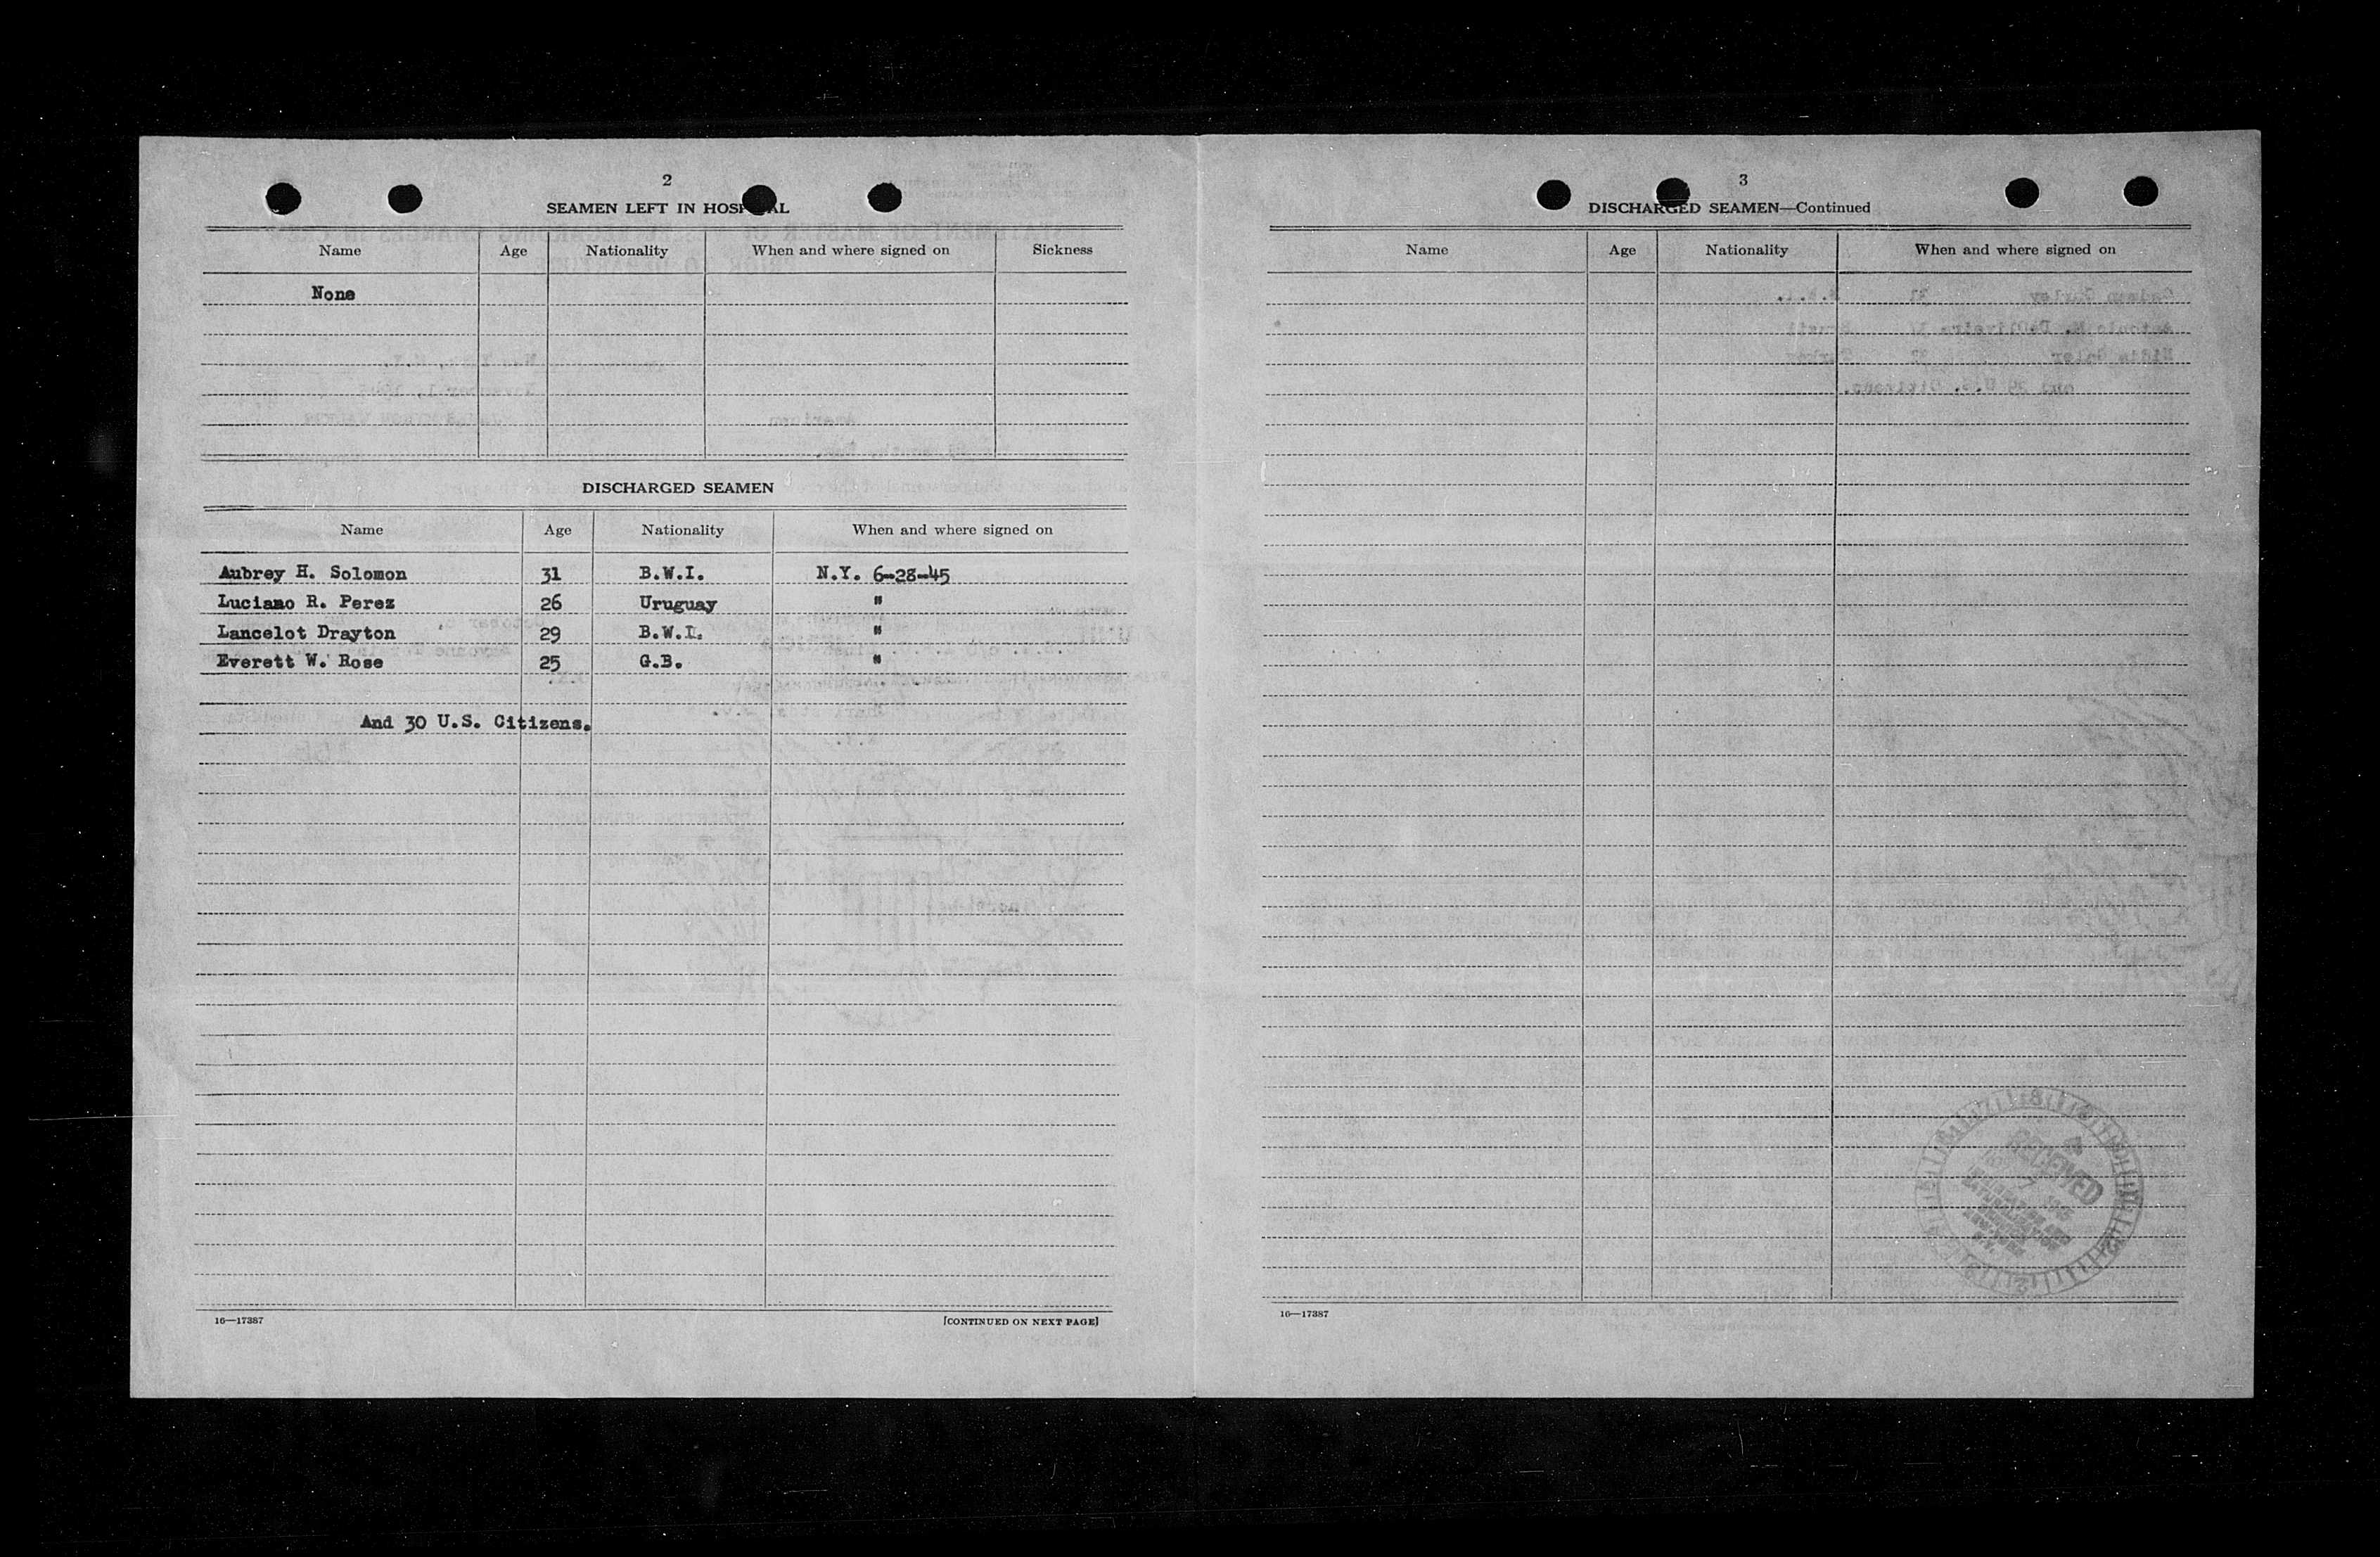 2
SEAMEN LEFT IN HOSPITAL
Name Age Nationality When and where signed on Sickness
None
DISCHARGED SEAMEN
Name Age Nationality When and where signed on
Aubrey H. Solomon 31 B.W.I. N.Y. 6-28-45
Luciano R. Perez 26 Uruguay "
Lancelot Drayton 29 B.W.I. "
Everett W. Rose 25 G.B. "
And 30 U.S. Citizens.
16—17387 [CONTINUED ON NEXT PAGE]
3
DISCHARGED SEAMEN—Continued
Name Age Nationality When and where signed on
RECEIVED
16—17387